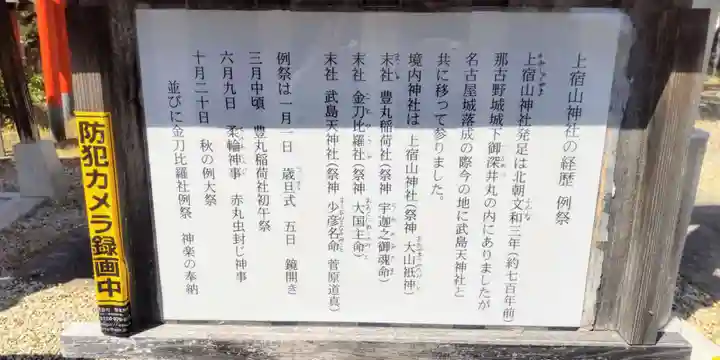 上宿山神社の経歴 例祭
上宿山神社発足は北朝文和三年(約七百年前)
那古野城城下御深井丸の内にありましたが
名古屋城落成の際今の地に武島天神社と
共に移って参りました。
境内神社は 上宿山神社(祭神 大山祇神)
末社 豊丸稲荷社(祭神 宇迦之御魂命)
末社 金刀比羅社(祭神 大国主命)
末社 武島天神社(祭神 少彦名命 菅原道真)
例祭は一月一日 歳旦式 五日 鏡開き
三月中頃 豊丸稲荷社初午祭
六月九日 柔輪神事 赤丸虫封じ神事
十月二十日 秋の例大祭
並びに金刀比羅社例祭 神楽の奉納
防犯カメラ録画中